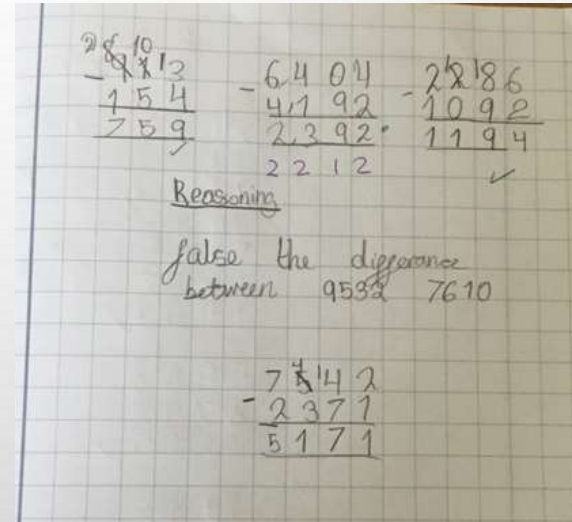 2 8 10
- 9 1 13
1 5 4
7 5 9 ✓
- 6 4 0 4
4,1 9 2
2,3 9 2 •
2 2 1 2
- 2 2 1 8 6
1 0 9 2
1 1 9 4
✓
Reasoning
false the differance
between 9532 7610
7 5 4 14 2
- 2 3 7 1
5 1 7 1